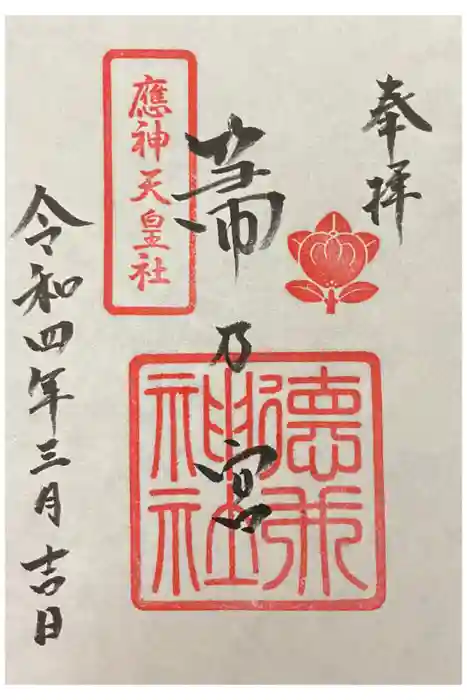 奉拝
乃宮
應神天皇社
德
神社
令和四年三月吉日